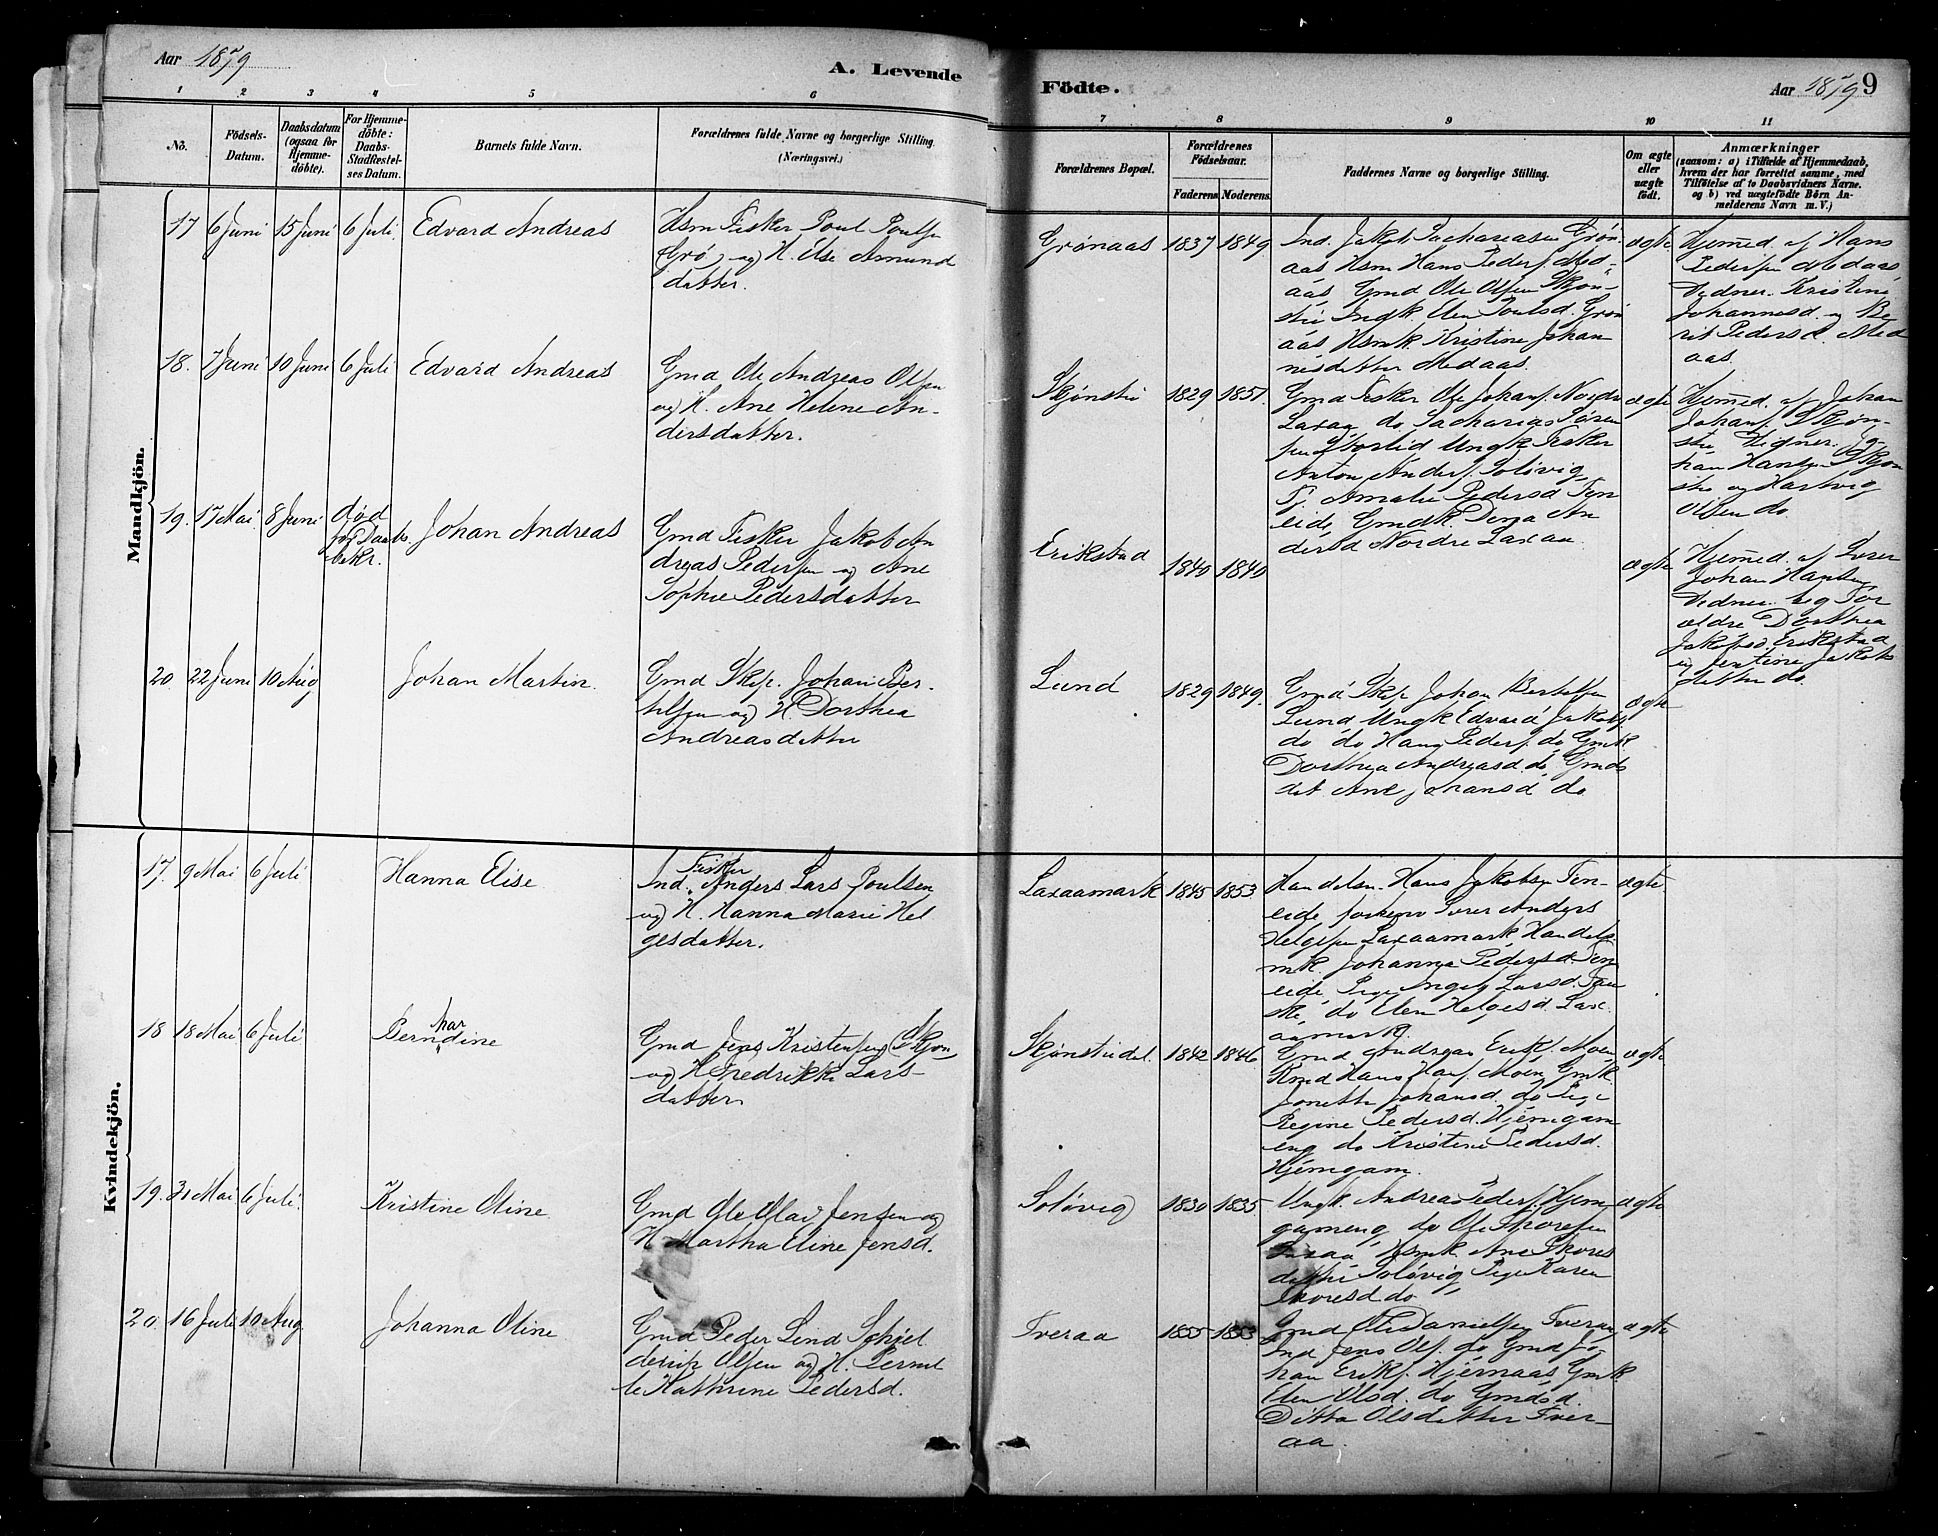 Aar 1879
A. Levende
Födte.
Aar 1879
9
1
2
3
4
5
6
7
8
9
10
11
No.
Födsels-
Datum.
Daabsdatum
(ogsaa for
Hjemme-
döbte).
For Hjemme-
döbte:
Daabs-
Stadfæstel-
ses Datum.
Barnets fulde Navn.
Forældrenes fulde Navne og borgerlige Stilling.
(Næringsvei.)
Forældrenes Bopæl.
Forældrenes
Födselsaar.
Faderens
Moderens.
Faddernes Navne og borgerlige Stilling.
Om ægte
eller
uægte
födt.
Anmærkninger
(saasom: a) i Tilfælde af Hjemmedaab,
hvem der har forrettet samme, med
Tilföielse af to Daabsvidners Navne.
og b) ved uægtefödte Börn An-
melderens Navn m. V.)
Mandkjön.
17 6 Juni 15 Juni 6 Juli. Edvard Andreas
Hsm Fisker Poul Poulsen
Grø og H. Else Amund
datter.
Grønaas 1837 1849
Ind. Jakob Sachariasen Grøn-
aas Hsm Hans Peders. Med-
aas Gmd Ole Olsen Skjøn-
sti Indk Elen Poulsd. Grøn
aas Hsmk Kristine Johan
nesdatter Medaas.
ægte
Hjemmed. af Hans
Pedersen Medaas
Vidner. Kristine
Johannesd. og Be
rit Pedersd. Med
aas.
18. 7 Juni 10 Juni 6 Juli Edvard Andreas
Gmd Ole Andreas Olsen
og H. Ane Helene An-
dersdatter.
Skjønsti 1829 1851.
Gmd Fisker Ole Johans. Nordre
Laxaa do Sacharias Søren
sen Storlid Ungk Fisker
Anton Anders. Soløvig,
Pg. Amalie Pedersd Fen
eide, Gmdk Dorea An
dersd Nordre Laxaa
ægte
Hjemmed. af Johan
Johans. Skjøn-
sti Vidner. Jo-
han Hansen Skjøn
sti og Hartvig
Olsen do.
19. 17 Mai 8 Juni død
før Daabs
bekr.
Johan Andreas
Gmd Fisker Jakob An
dreas Pedersen og Ane
Sophie Pedersdatter
Erikstad 1840 1840
ægte
Hjemmed. af Lærer
Johan Hansen
Vidner. beg For
ældre Dorthea
Jakobsd. Erikstad
og Jentine Jakobs
datter do.
20. 22 Juni 10 Aug Johan Martin.
Gmd Skip. Johan Ber-
telsen og H. Dorthea
Andreasdatter
Lund 1829 1849.
Gmd Skip Johan Bertelsen
Lund Ungk Edvard Jakobs.
do do Hans Peders. do Gmk
Dorthea Andreasd. do, Gmds
dat. Ane Johansd do
ægte
Kvindekjön.
17. 9 Mai 6 Juli Hanna Elise
Fisker
Ind. Anders Lars Poulsen
og H. Hanna Marie Hel
gesdatter.
Laxaamark 1845 1853.
Handelsm. Hans Jakobsen Fen-
eide, forhenv Lærer Anders
Helgesen Laxaamark Handels
mk. Johanna Pedersd. Fen
eide Pige Ingeb. Larsd. Fau
ske, do Elen Helgesd. Lax
aamark.
ægte.
18 18 Mai 6 Juli
har
Berndine
Gmd Jens Kristensen Skjøn
og H Fredrikke Lars-
datter
Skjønstidal. 1842 1846
Gmd Andreas Erik. Moen
Rmd Hans Hans. Moen Gmk
Jonette Johansd. do Pige
Regine Pedersd. Hjemgam
eng do Kristine Pedersd.
Hjemgam.
ægte
19. 31 Mai 6 Juli. Kristine Oline
Gmd Ole Olai Jensen og
H. Martha Eline Jensd.
Soløvig 1830 1835
Ungk. Andreas Peders. Hjem
gameng do Ole Skoresen
Laxaa Hsmk Ane Skores
datter Soløvig, Pige Karen
Skoresd do
ægte
20. 16 Juli 10 Aug. Johanna Oline
Gmd Peder Lind Schjel
derup Olsen og H. Pernil
le Kathrine Pedersd.
Tveraa 1855 1853
Gmd Ole Danielsen Tveraa
Ind Jens Ols. do Gmd Jo-
han Eriks. Hjernaas Gmk
Elen Olsd. do Gmdsd.
Ditta Olsdatter Tver-
aa.
ægte